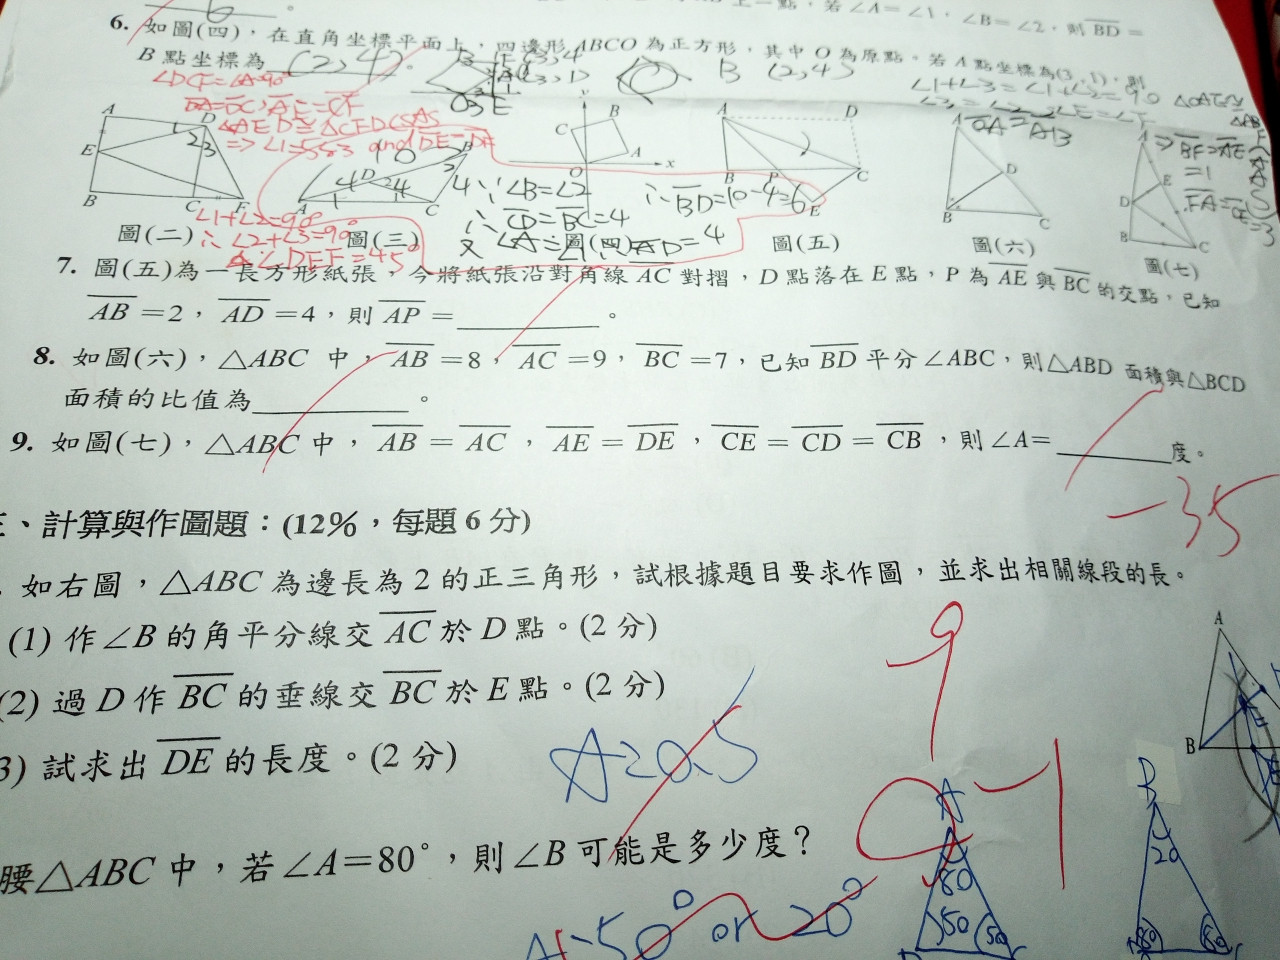 上一點，若∠A=∠1，∠B=∠2，則BD=
6
6. 如圖(四)，在直角坐標平面上，四邊形ABCO為正方形，其中O為原點。若A點坐標為(3,1)，則
B點坐標為 (2,4) 。
B (2,4)
∠DCF=∠A=90°
∠1+∠3=∠1+∠2=90
DA=DC,AE=CF
△AED≅△CFD(SAS
OA=AB
=>∠1=∠3 and DE=DF
=> BF=AE
=1
FA=CE=3
∵∠B=∠2
∴CD=BC=4
又∠A=∠1 AD=4
∴BD=10-4=6
∠1+∠2=90°
∴∠2+∠3=90°
∠DEF=45°
圖(二) 圖(三) 圖(四) 圖(五) 圖(六) 圖(七)
7. 圖(五)為一長方形紙張，今將紙張沿對角線AC對摺，D點落在E點，P為AE與BC的交點，已知
AB=2，AD=4，則AP= ______ 。
8. 如圖(六)，△ABC中，AB=8，AC=9，BC=7，已知BD平分∠ABC，則△ABD面積與△BCD
面積的比值為______。
9. 如圖(七)，△ABC中，AB=AC，AE=DE，CE=CD=CB，則∠A=______度。
-35
三、計算與作圖題：(12%，每題6分)
. 如右圖，△ABC為邊長為2的正三角形，試根據題目要求作圖，並求出相關線段的長。
(1) 作∠B的角平分線交AC於D點。(2分)
(2) 過D作BC的垂線交BC於E點。(2分)
3) 試求出DE的長度。(2分)
A=0.5
9
-1
腰△ABC中，若∠A=80°，則∠B可能是多少度？
A:50° or 20°
A
80
50
50
B
20
80
80